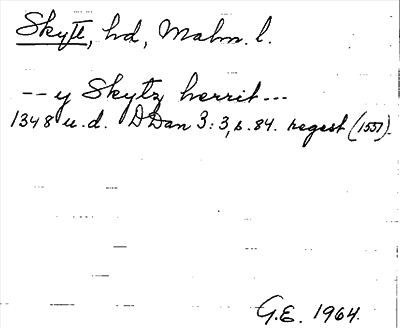 Skytt, hd, Malm. l.
-- y Skytz herrit ---
1348 u.d. DDan 3:3, s. 84. regest (1551).
G.E. 1964.